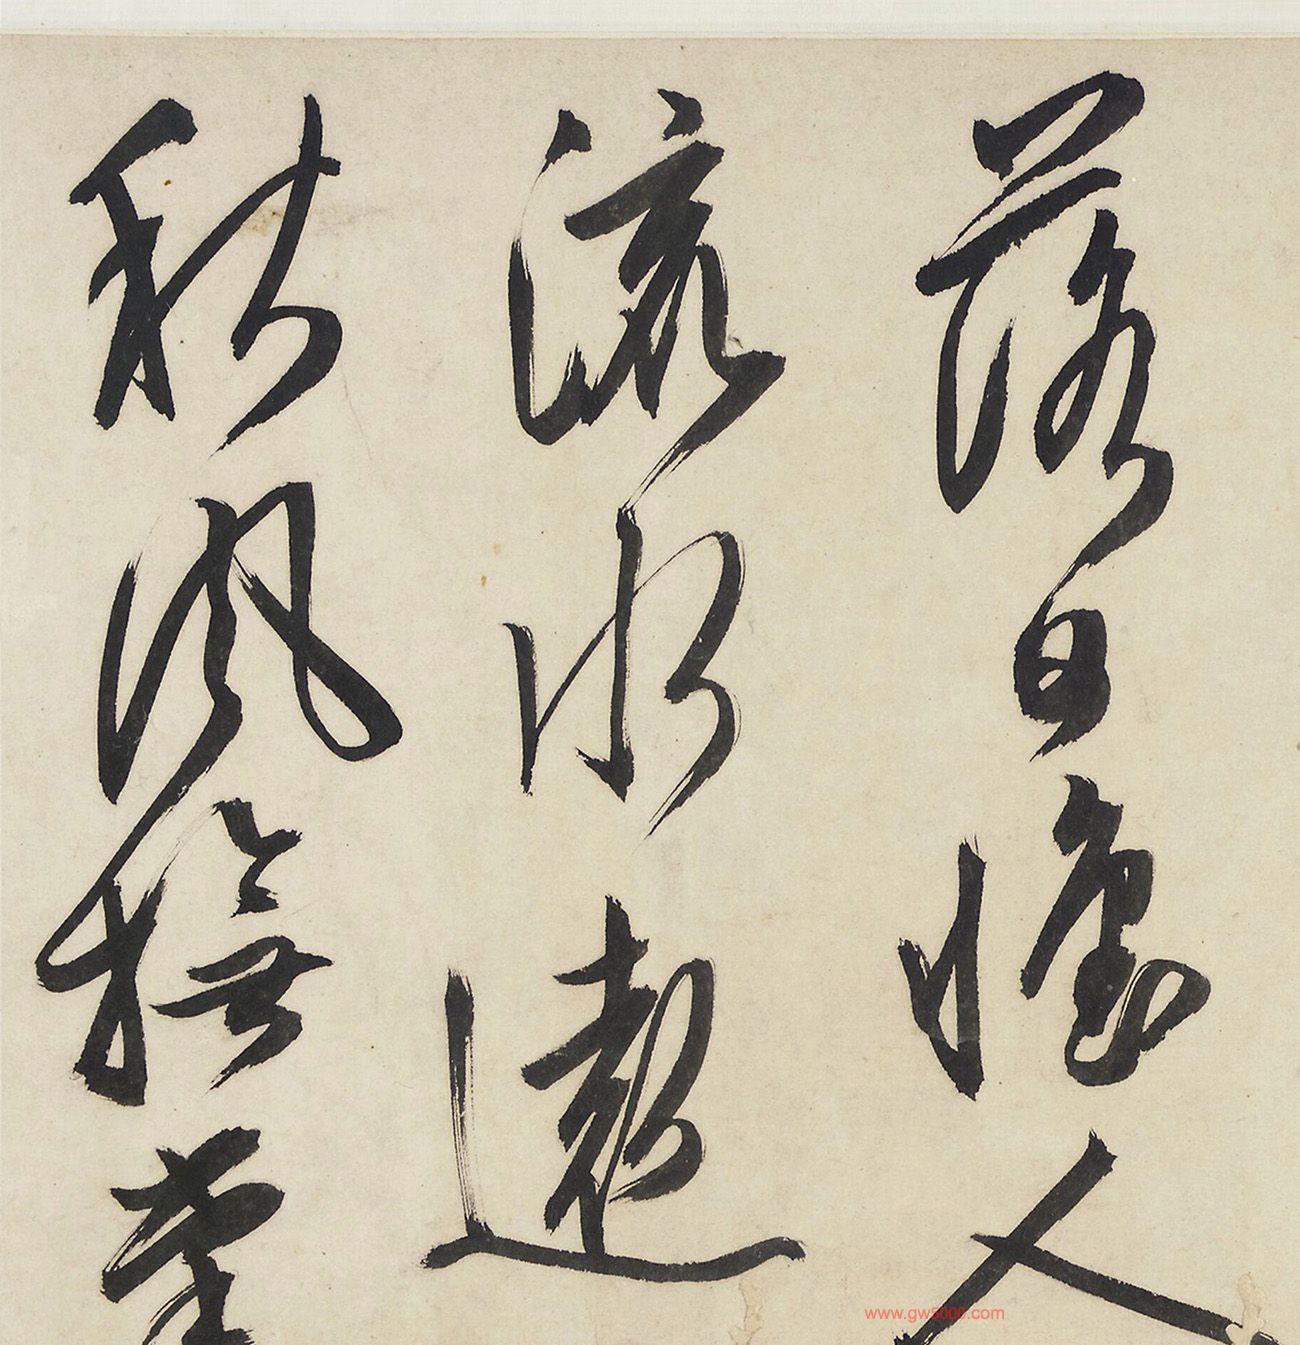 落日憶人
流水遶
秋風撫
www.gw5000.com